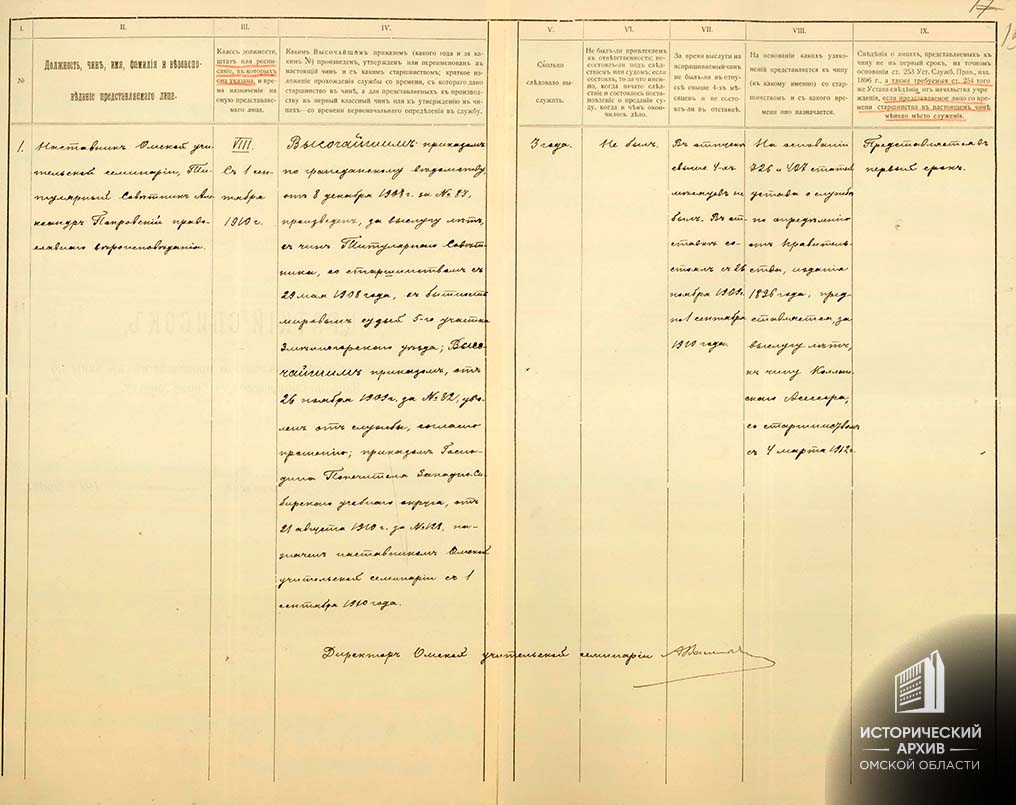 17
I.
II.
III.
IV.
V.
VI.
VII.
VIII.
IX.
№
Должность, чинъ, имя, фамилія и вѣроиспо-
вѣданіе представляемаго лица.
Классъ должности,
штатъ или роспи-
саніе, въ которыхъ
она указана, и вре-
мя назначенія на
оную представляе-
маго лица.
Какимъ Высочайшимъ приказомъ (какого года и за ка-
кимъ №) произведенъ, утвержденъ или переименованъ въ
настоящій чинъ и съ какимъ старшинствомъ; краткое из-
ложеніе прохожденія службы со времени, съ котораго дано
старшинство въ чинѣ, а для представляемыхъ къ производ-
ству въ первый классный чинъ или къ утвержденію въ чи-
нахъ—со времени первоначальнаго опредѣленія въ службу.
Сколько
слѣдовало вы-
служить.
Не былъ-ли привлекаемъ
къ отвѣтственности; не-
состоялъ-ли подъ слѣд-
ствіемъ или судомъ; если
состоялъ, то за что имен-
но, когда начато слѣд-
ствіе и состоялось поста-
новленіе о преданіи су-
ду, когда и чѣмъ окон-
чилось дѣло.
За время выслуги на
испрашиваемый чинъ
не былъ-ли въ отпу-
скѣ свыше 4-хъ мѣ-
сяцевъ и не состо-
ялъ-ли въ отставкѣ.
На основаніи какихъ узако-
неній представляется къ чину
(къ какому именно) со стар-
шинствомъ и съ какого вре-
мени оно назначается.
Свѣдѣнія о лицахъ, представляемыхъ къ
чину не въ первый срокъ, на точномъ
основаніи ст. 253 Уст. Служб. Прав., изд.
1896 г., а также требуемыя ст. 254 того
же Устава свѣдѣнія отъ начальства учре-
жденія, если представляемое лицо со вре-
мени старшинства въ настоящемъ чинѣ
мѣняло мѣсто служенія.
1.
Наставникъ Омской учи-
тельской семинаріи, Ти-
тулярный Совѣтникъ Але-
ксандръ Покровскій право-
славнаго вѣроисповѣданія.
VIII.
Съ 1 сен-
тября
1910 г.
Высочайшимъ приказомъ
по гражданскому вѣдомству,
отъ 8 декабря 1908 г. за № 87,
произведенъ, за выслугу лѣтъ,
въ чинъ Титулярнаго Совѣт-
ника, со старшинствомъ съ
29 мая 1908 года, въ бытность
мировымъ судьей 5-го участка
Змѣиногорскаго уѣзда; Высо-
чайшимъ приказомъ, отъ
26 ноября 1909 г. за № 82, уво-
ленъ отъ службы, согласно
прошенію; приказомъ Госпо-
дина Попечителя Западно-Си-
бирскаго учебнаго округа, отъ
21 августа 1910 г. за № 121, на-
значенъ наставникомъ Омской
учительской семинаріи съ 1
сентября 1910 года.
3 года.
Не былъ.
Въ отпуску
свыше 4-хъ
мѣсяцевъ не
былъ. Въ от-
ставкѣ со-
стоялъ съ 26
ноября 1909 г.
по 1 сентября
1910 года.
На основаніи
326 и 407 статей
устава о службѣ
по опредѣленію
отъ Правитель-
ства, изданія
1896 года, пред-
ставляется, за
выслугу лѣтъ,
къ чину Коллеж-
скаго Асессора,
со старшинствомъ
съ 4 марта 1912 г.
Представляется въ
первый срокъ.
Директоръ Омской учительской семинаріи
ИСТОРИЧЕСКИЙ
АРХИВ
ОМСКОЙ ОБЛАСТИ